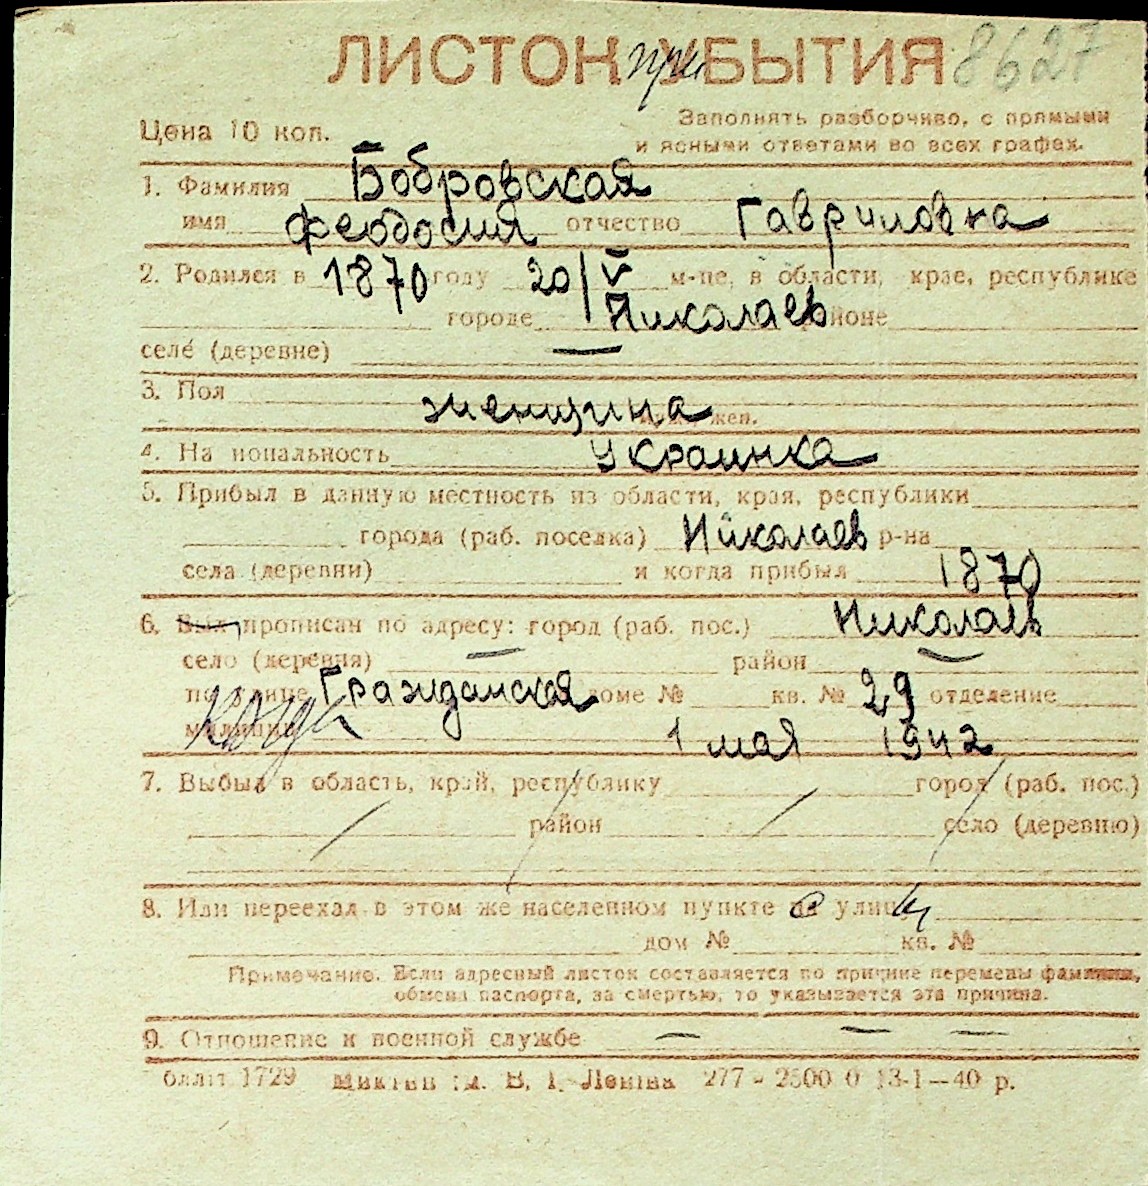 ЛИСТОК при УБЫТИЯ 8627
Цена 10 коп.
Заполнять разборчиво, с прямыми
и ясными ответами во всех графах.
1. Фамилия Бобровская
имя Феодосия отчество Гавриловна
2. Родился в 1870 году 20/V м-це, в области, крае, республике
городе Николаев районе
селе (деревне) —
3. Пол женщина
муж. жен.
4. Национальность Украинка
5. Прибыл в данную местность из области, края, республики
города (раб. поселка) Николаев р-на
села (деревни) и когда прибыл 1870
6. Был прописан по адресу: город (раб. пос.) Николаев
село (деревня) — район —
по улице Гражданская доме № кв. № 29 отделение
милиции когда 1 мая 1942
7. Выбыл в область, край, республику город (раб. пос.)
район село (деревню)
8. Или переехал в этом же населенном пункте на улицу
дом № кв. №
Примечание. Если адресный листок составляется по причине перемены фамилии,
обмена паспорта, за смертью, то указывается эта причина.
9. Отношение к военной службе — — —
блліт 1729 В. І. Леніна 277 - 2500 0 13-1—40 р.